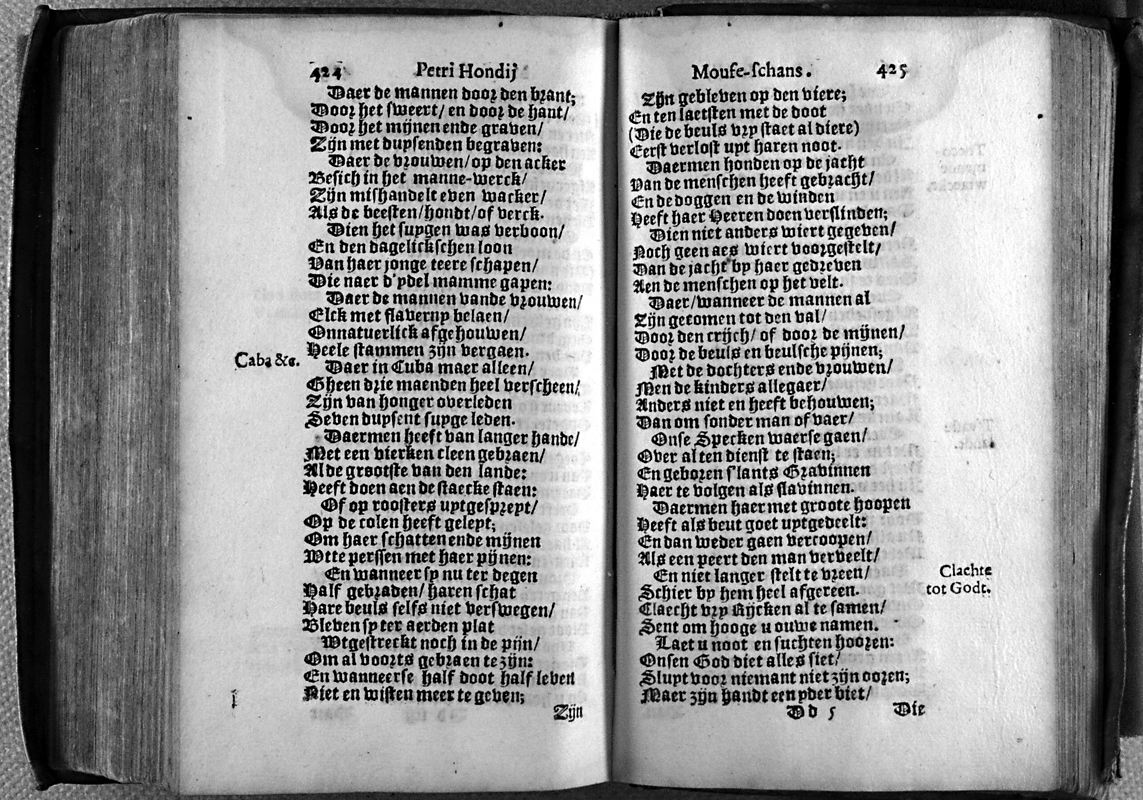 424 Petri Hondij
Daer de mannen door den brant;
Door het sweert/ en door de hant/
Door het mijnen ende graven/
Zijn met duysenden begraven:
Daer de vrouwen/op den acker
Besich in het manne-werck/
Zijn mishandelt even wacker/
Als de beesten/hondt/of verck.
Dien het suygen was verboon/
En den dagelickschen loon
Van haer jonge teere schapen/
Die naer d'ydel mamme gapen:
Daer de mannen vande vrouwen/
Elck met slaverny belaen/
Onnatuerlick afgehouwen/
Heele stammen zijn vergaen.
Caba &c.
Daer in Cuba maer alleen/
Gheen drie maenden heel verscheen/
Zijn van honger overleden
Seven duysent suyge leden.
Daermen heeft van langer hande/
Met een vierken cleen gebraen/
Al de grootste van den lande:
Heeft doen aen de staecke staen:
Of op roosters uytgespreyt/
Op de colen heeft geleyt;
Om haer schatten ende mijnen
Wtte perssen met haer pijnen:
En wanneer sy nu ter degen
Half gebraden/ haren schat
Hare beuls selfs niet verswegen/
Bleven sy ter aerden plat
Wtgestreckt noch in de pijn/
Om al voorts gebraen te zijn:
En wanneerse half doot half leven
Niet en wisten meer te geven;
Zijn
Mouse-schans. 425
Zijn gebleven op den viere;
En ten laetsten met de doot
(Die de beuls vry staet al diere)
Eerst verlost uyt haren noot.
Daermen honden op de jacht
Van de menschen heeft gebracht/
En de doggen en de winden
Heeft haer Heeren doen verslinden;
Dien niet anders wiert gegeven/
Noch geen aes wiert voorgestelt/
Dan de jacht by haer gedreven
Aen de menschen op het velt.
Daer/wanneer de mannen al
Zijn getomen tot den val/
Door den crijch/ of door de mijnen/
Door de beuls en beulsche pijnen;
Met de dochters ende vrouwen/
Men de kinders allegaer/
Anders niet en heeft behouwen;
Dan om sonder man of vaer/
Onse Specken waerse gaen/
Over al ten dienst te staen;
En geboren s'lants Gravinnen
Haer te volgen als slavinnen.
Daermen haer met groote hoopen
Heeft als beut goet uytgedeelt:
En dan weder gaen vercoopen/
Als een peert den man verveelt/
En niet langer stelt te vreen/
Schier by hem heel afgereen.
Clachte
tot Godt.
Claecht vry Rijcken al te samen/
Sent om hooge u ouwe namen.
Laet u noot en suchten hooren:
Onsen God diet alles siet/
Sluyt voor niemant niet zijn ooren;
Maer zijn handt een yder biet/
Dd 5 Die